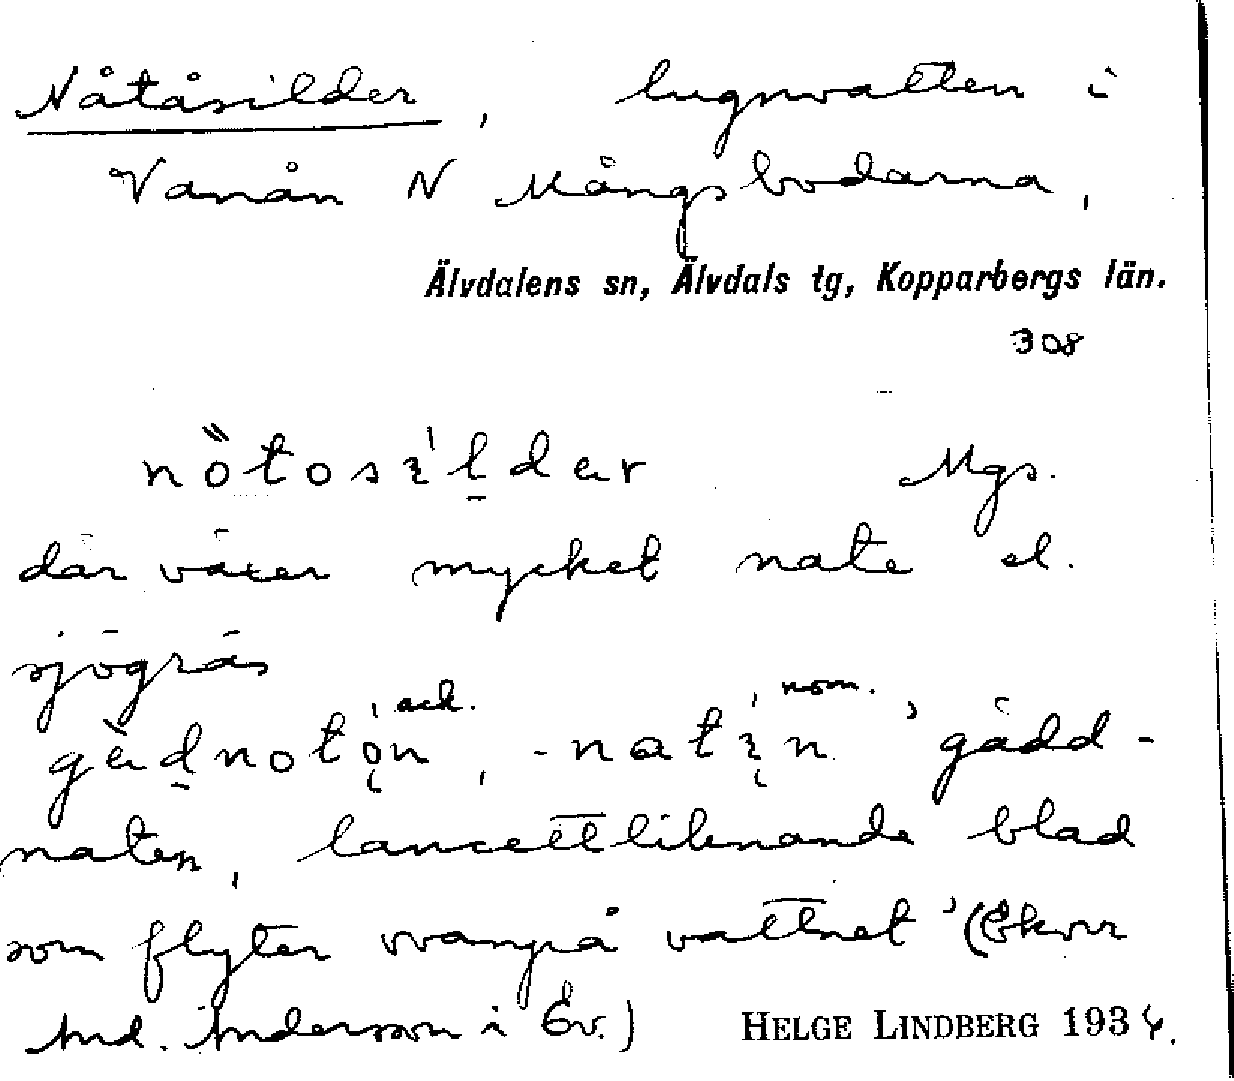 Nåtåsilder, lugnvatten i
Vanån N Mångsbodarna,
Älvdalens sn, Älvdals tg, Kopparbergs län.
308
nòtosɪ'l̠dær Mgs.
där växer mycket nate el.
sjögräs
gæ̀d̠notǫ́n ack., -natɪ̨́n nom. 'gädd-
naten, lancettliknande blad
som flyter ovanpå vattnet' (
And. Andersson i Ev.) HELGE LINDBERG 1936.